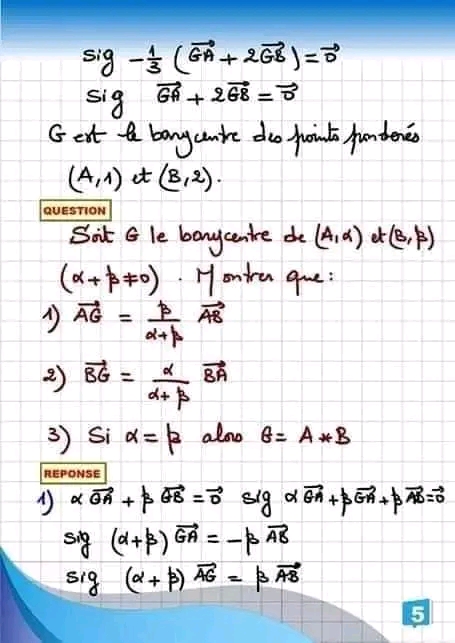 sig -1/3 (GA⃗ + 2GB⃗) = 0⃗
sig GA⃗ + 2GB⃗ = 0⃗
G est le barycentre des points pondérés
(A,1) et (B,2).
QUESTION
Soit G le barycentre de (A,α) et (B,β)
(α+β≠0). Montrer que:
1) AG⃗ = β/(α+β) AB⃗
2) BG⃗ = α/(α+β) BA⃗
3) Si α=β alors G = A*B
REPONSE
1) α GA⃗ + β GB⃗ = 0⃗ sig α GA⃗ + β GA⃗ + β AB⃗ = 0⃗
sig (α+β) GA⃗ = -β AB⃗
sig (α+β) AG⃗ = β AB⃗
5